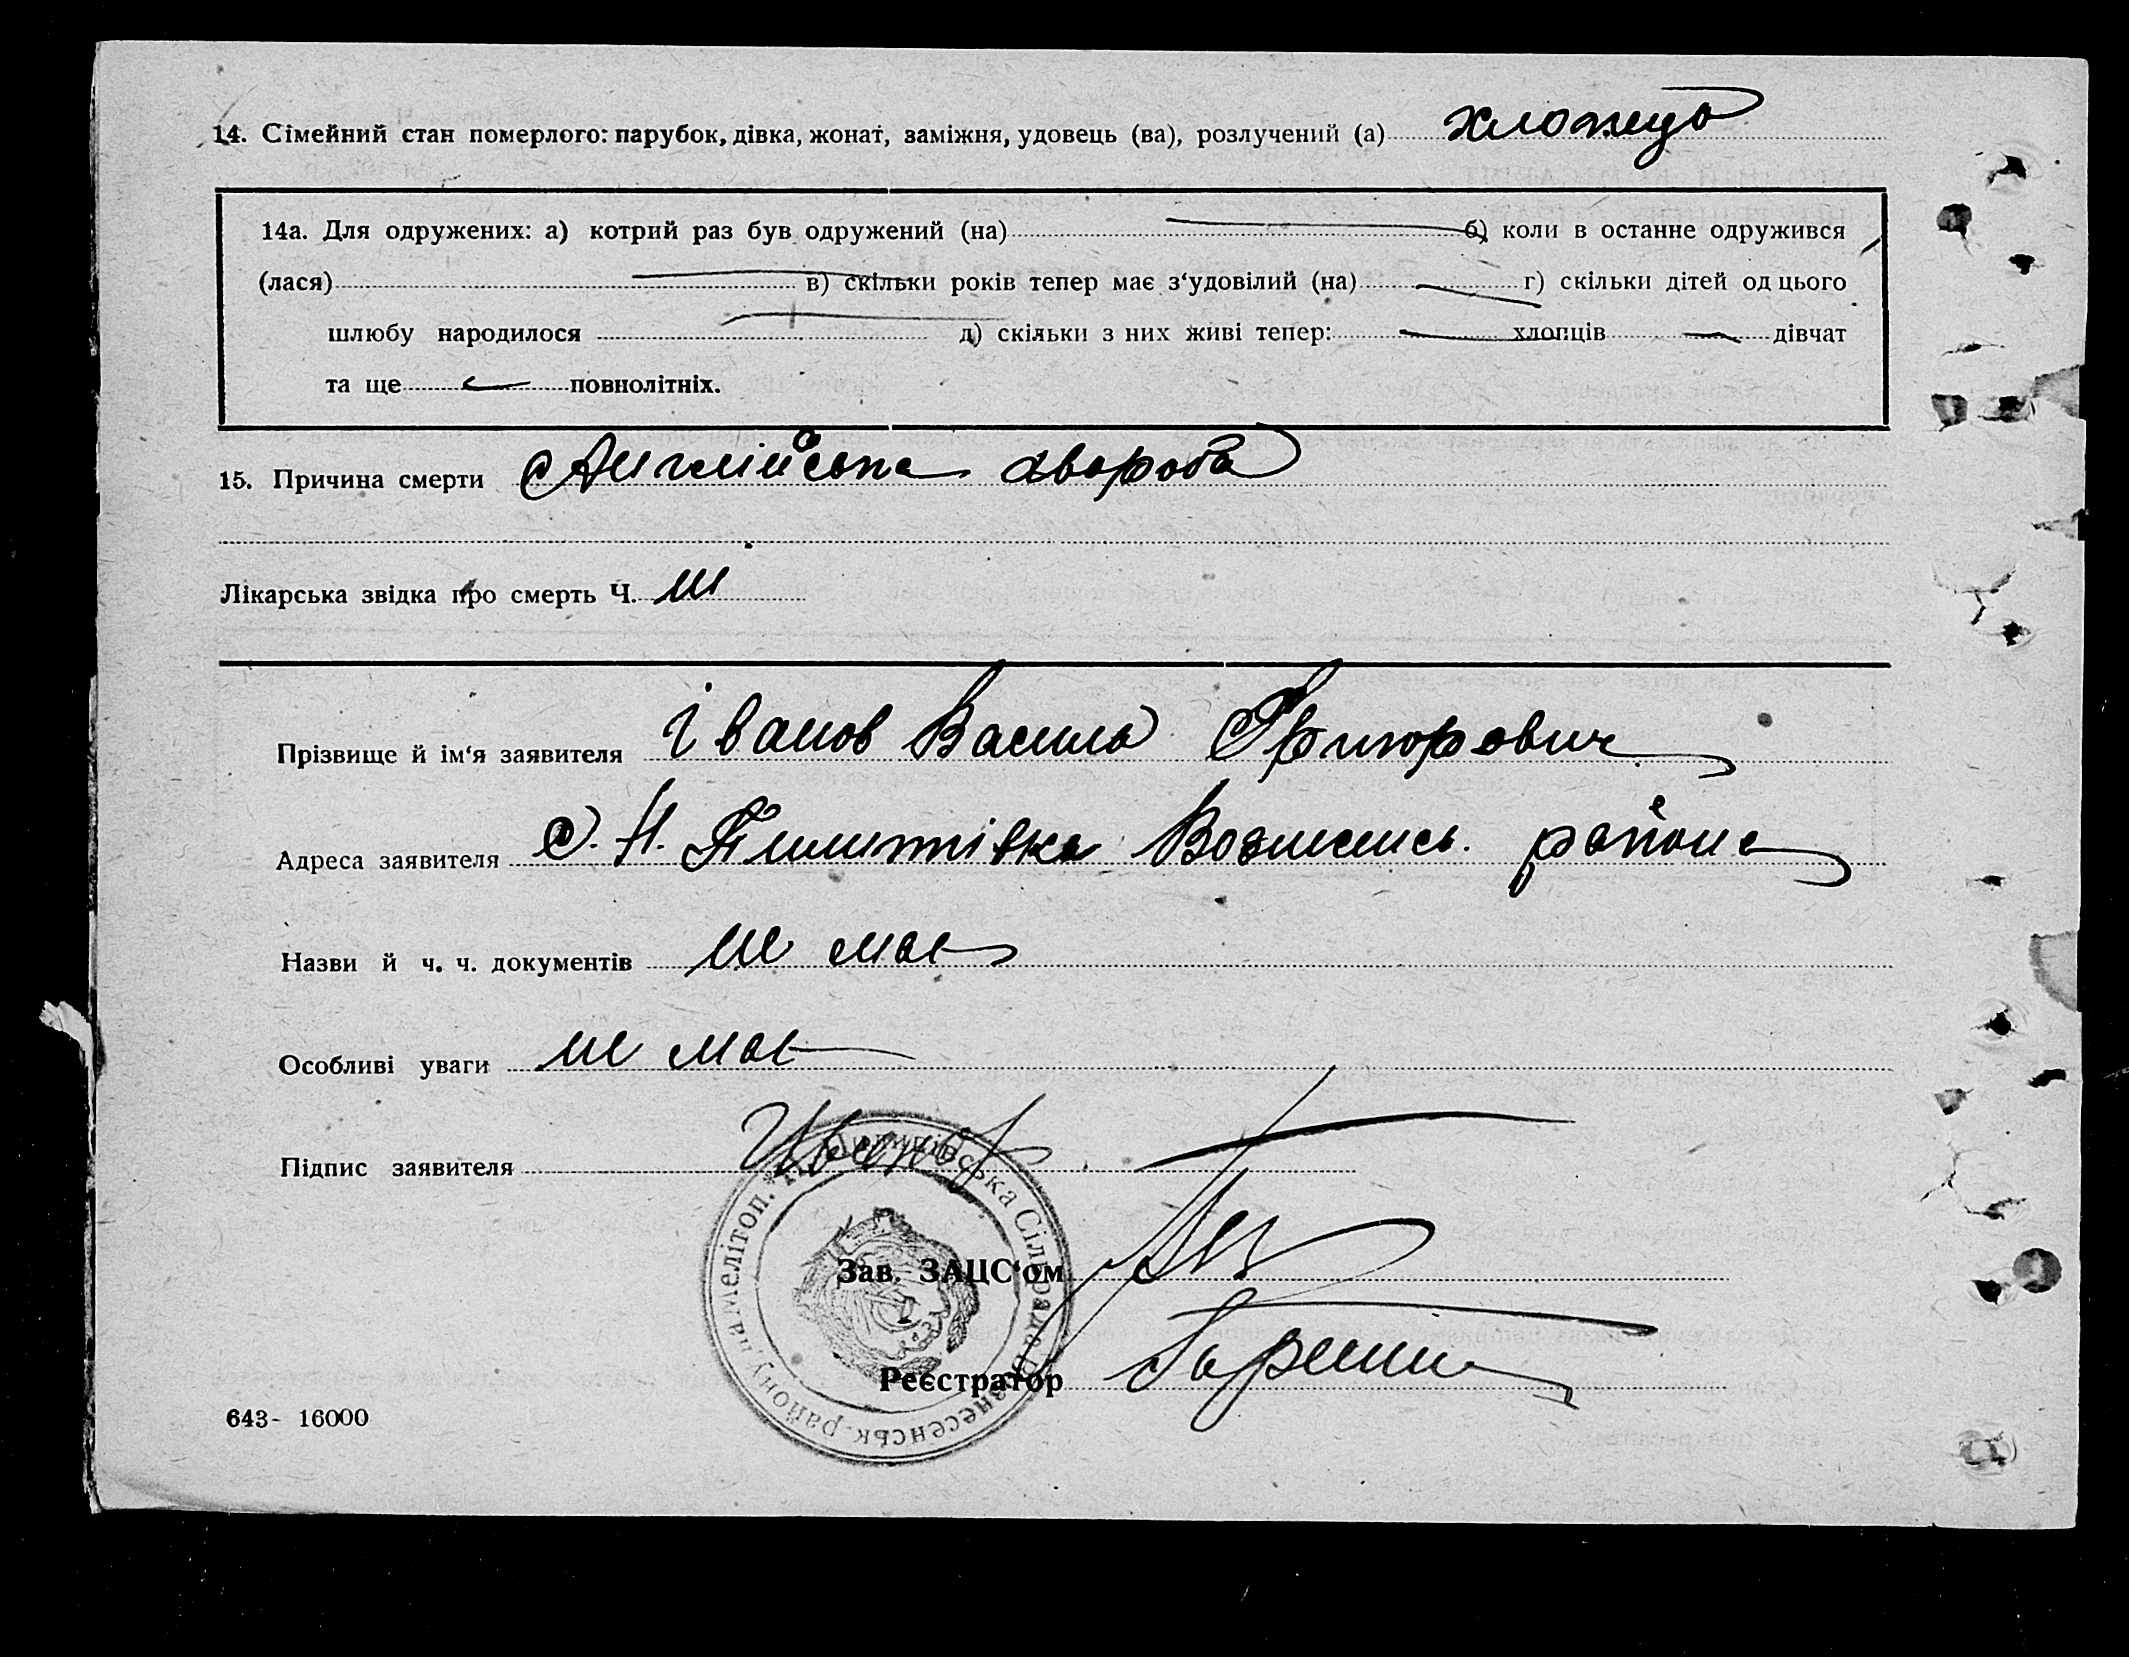 14. Сімейний стан померлого: парубок, дівка, жонат, заміжня, удовець (ва), розлучений (а) хлопець
14а. Для одружених: а) котрий раз був одружений (на) б) коли в останне одружився
(лася) в) скільки років тепер має з‘удовілий (на) г) скільки дітей од цього
шлюбу народилося д) скільки з них живі тепер: хлопців дівчат
та ще повнолітніх.
15. Причина смерти Англійська хвороба
Лікарська звідка про смерть Ч.
Прізвище й ім‘я заявителя Іванов Василь Григорович
Адреса заявителя С. Н. Пилипівка Вознесенсь. району
Назви й ч. ч. документів не має
Особливі уваги не має
Підпис заявителя Иванов
Зав. ЗАЦС‘ом
Реєстратор
Пилипівська Сільрада Вознесенськ. району на Мелітоп.
643- 16000